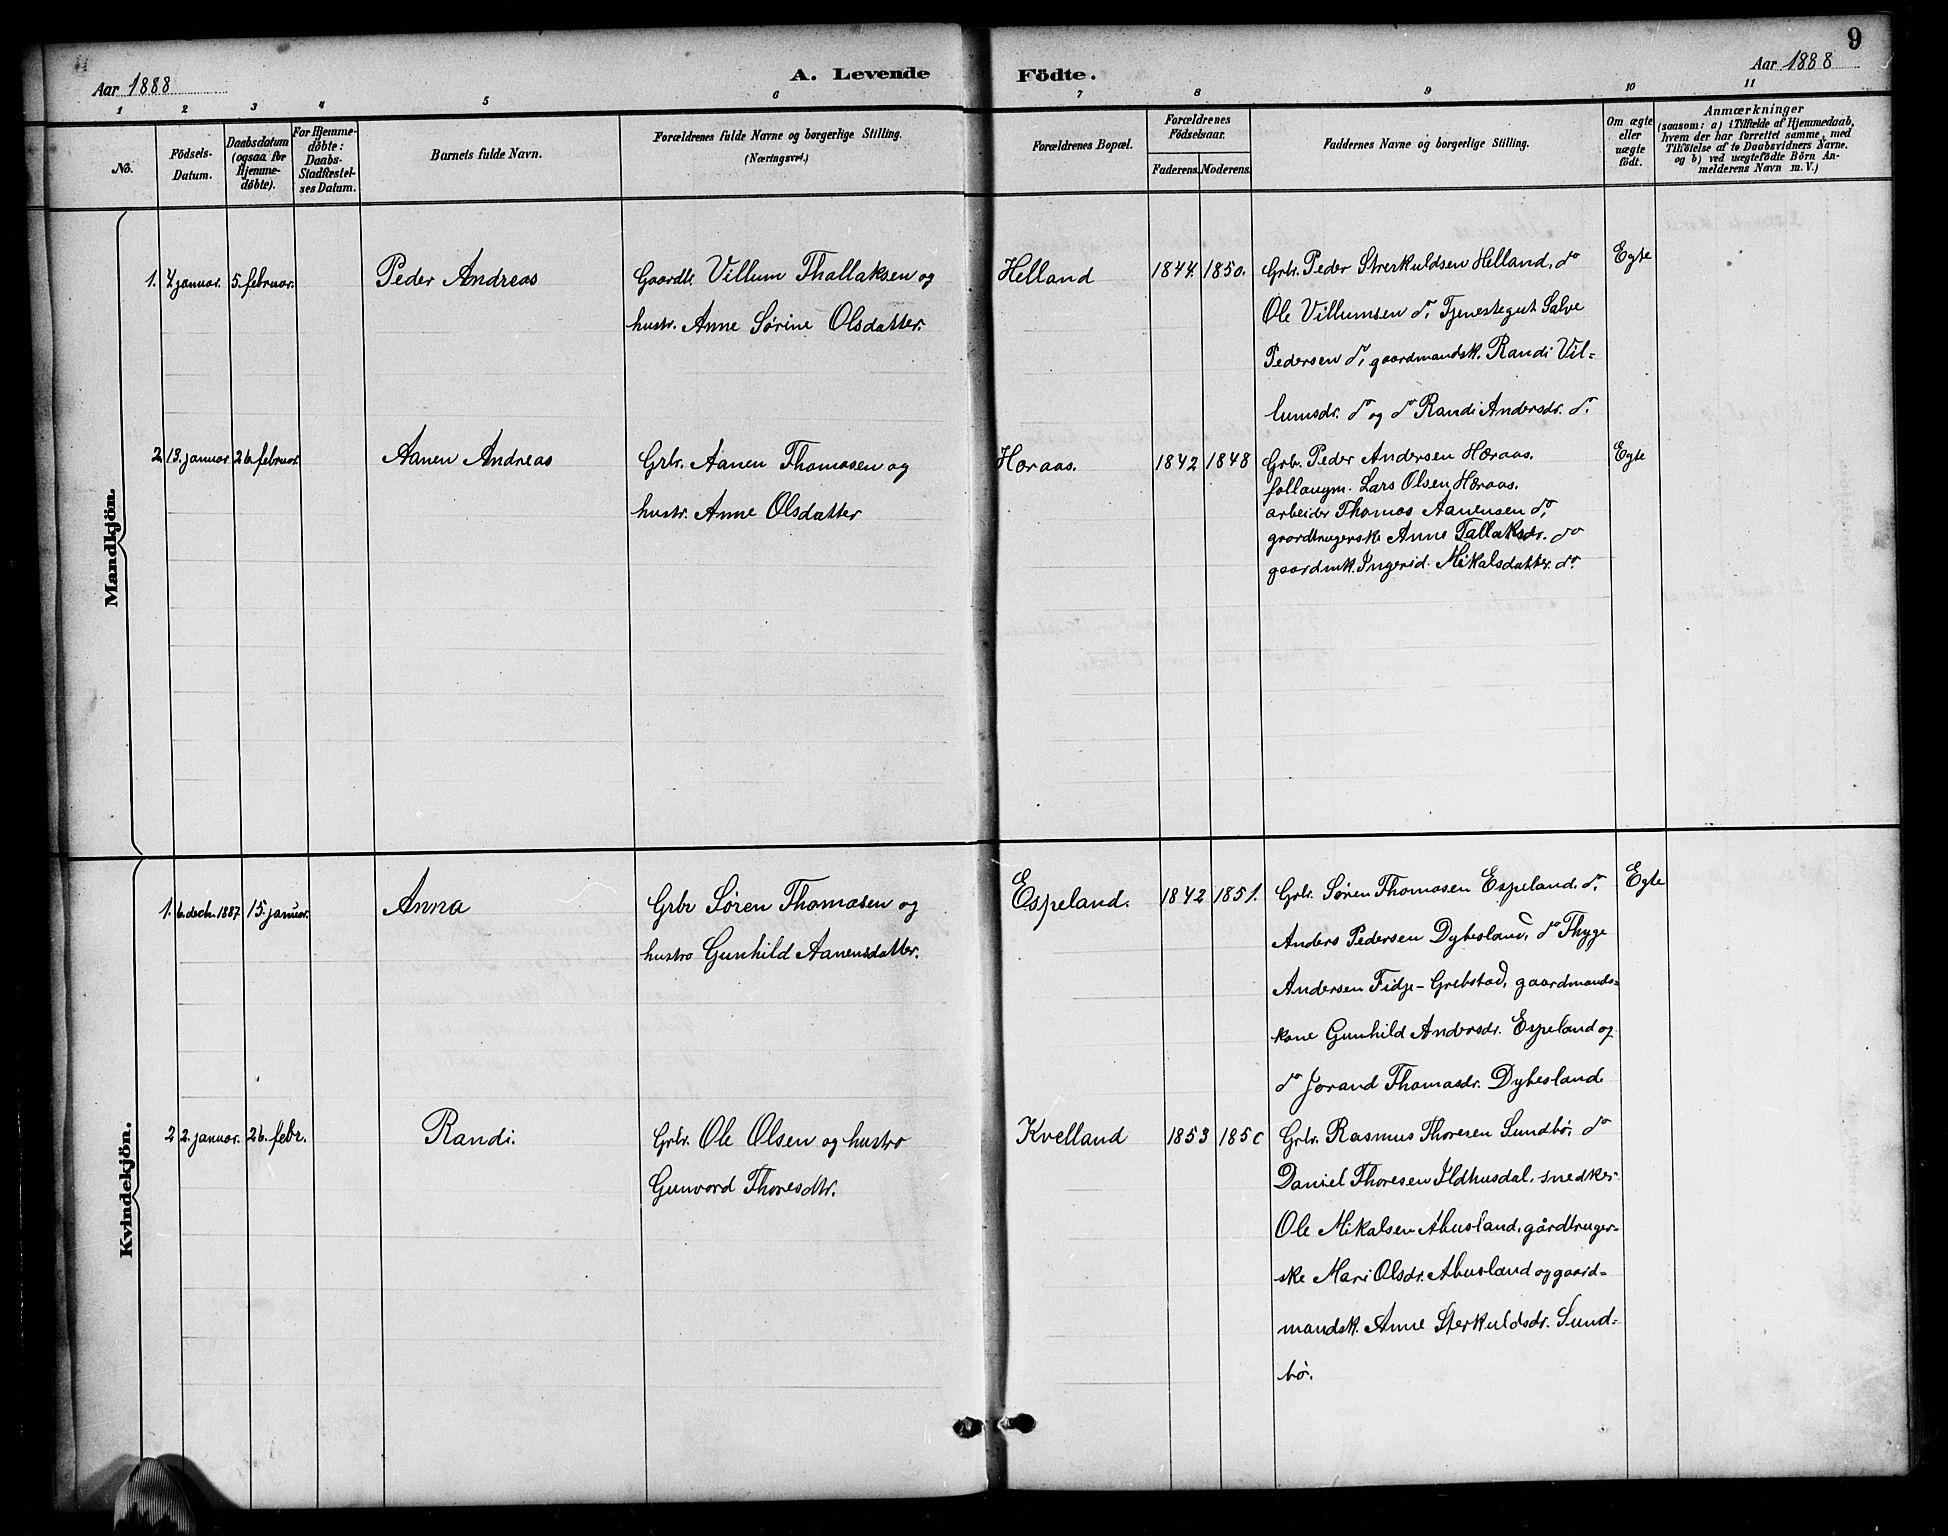 9
Aar 1888
A. Levende
Födte.
Aar 1888
1 2 3 4 5 6 7 8 9 10 11
No.
Födsels-
Datum.
Daabsdatum
(ogsaa for
Hjemme-
döbte).
For Hjemme-
döbte:
Daabs-
Stadfæstel-
ses Datum.
Barnets fulde Navn.
Forældrenes fulde Navne og borgerlige Stilling.
(Næringsvei.)
Forældrenes Bopæl.
Forældrenes
Födselsaar.
Faderens. Moderens.
Faddernes Navne og borgerlige Stilling.
Om ægte
eller
uægte
födt.
Anmærkninger
(saasom: a) i Tilfælde af Hjemmedaab,
hvem der har forrettet samme, med
Tilföielse af to Daabsvidners Navne.
og b) ved uægtefödte Börn An-
melderens Navn m. V.)
Mandkjön.
1. 4 januar. 5. februar. Peder Andreas
Gaardbr. Villum Thallaksen og
hustr. Anne Sørine Olsdatter.
Helland 1844. 1850.
Grbr. Peder Sterkuldsen Helland, do
Ole Villumsen do, Tjenestegut Salve
Pedersen do, gaardmandsk. Randi Vil=
lumsdr. do og do Randi Andersdr. do.
Egte
2 13. januar 26. februar. Aanen Andreas
Grbr. Aanen Thomasen og
hustr. Anne Olsdatter
Høraas. 1842 1848
Grbr. Peder Andersen Høraas.
Lars Olsen Høraas.
arbeider Thomas Aanensen do,
gaardbrugerske Anne Tallaksdr. do
gaardmk. Ingerid Mikalsdatter. do.
Egte
Kvindekjön.
1. 6. decbr. 1887 15. januar. Anna
Grbr Søren Thomasen og
hustro Gunhild Aanensdatter.
Espeland. 1842 1851.
Grbr. Søren Thomasen Espeland, do.
Anders Pedersen Dybesland, do Thyge
Andersen Fidje-Grebstad, gaardmands=
kone Gunhild Andersdr. Espeland og
do Jorand Thomasdr. Dybesland
Egte
2 2. januar. 26. febr. Randi.
Grbr. Ole Olsen og hustro
Gunvord Thoresdtr.
Kvelland 1853 185
Grbr. Rasmus Thoresen Sundbø, do
Daniel Thoresen Ildhusdal, snedker
Ole Mikalsen Åbusland, gårdbruger-
ske Mari Olsdr. Abusland og gaard=
mandsk. Anne Sterkuldsdr. Sund=
bø.